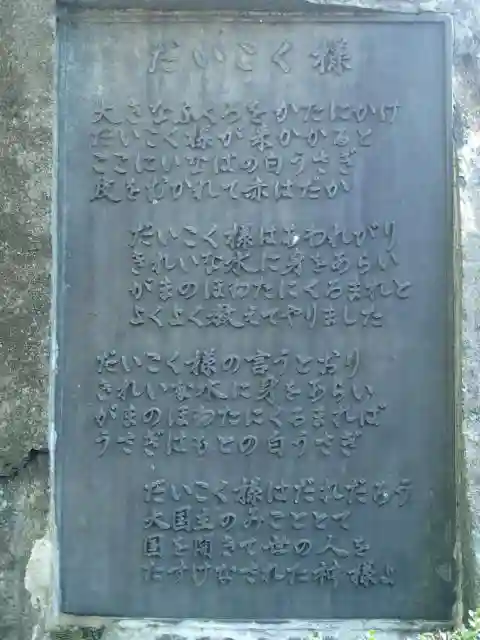 だいこく様
大きなふくろをかたにかけ
だいこく様が来かかると
ここにいなばの白うさぎ
皮をむかれて赤はだか
だいこく様はあわれがり
きれいな水に身をあらい
がまのほわたにくるまれと
よくよく教えてやりました
だいこく様の言うとおり
きれいな水に身をあらい
がまのほわたにくるまれば
うさぎはもとの白うさぎ
だいこく様はだれだろう
大国主のみこととて
国を開きて世の人を
たすけなされた神様よ